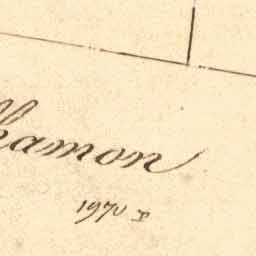 hamon
1970